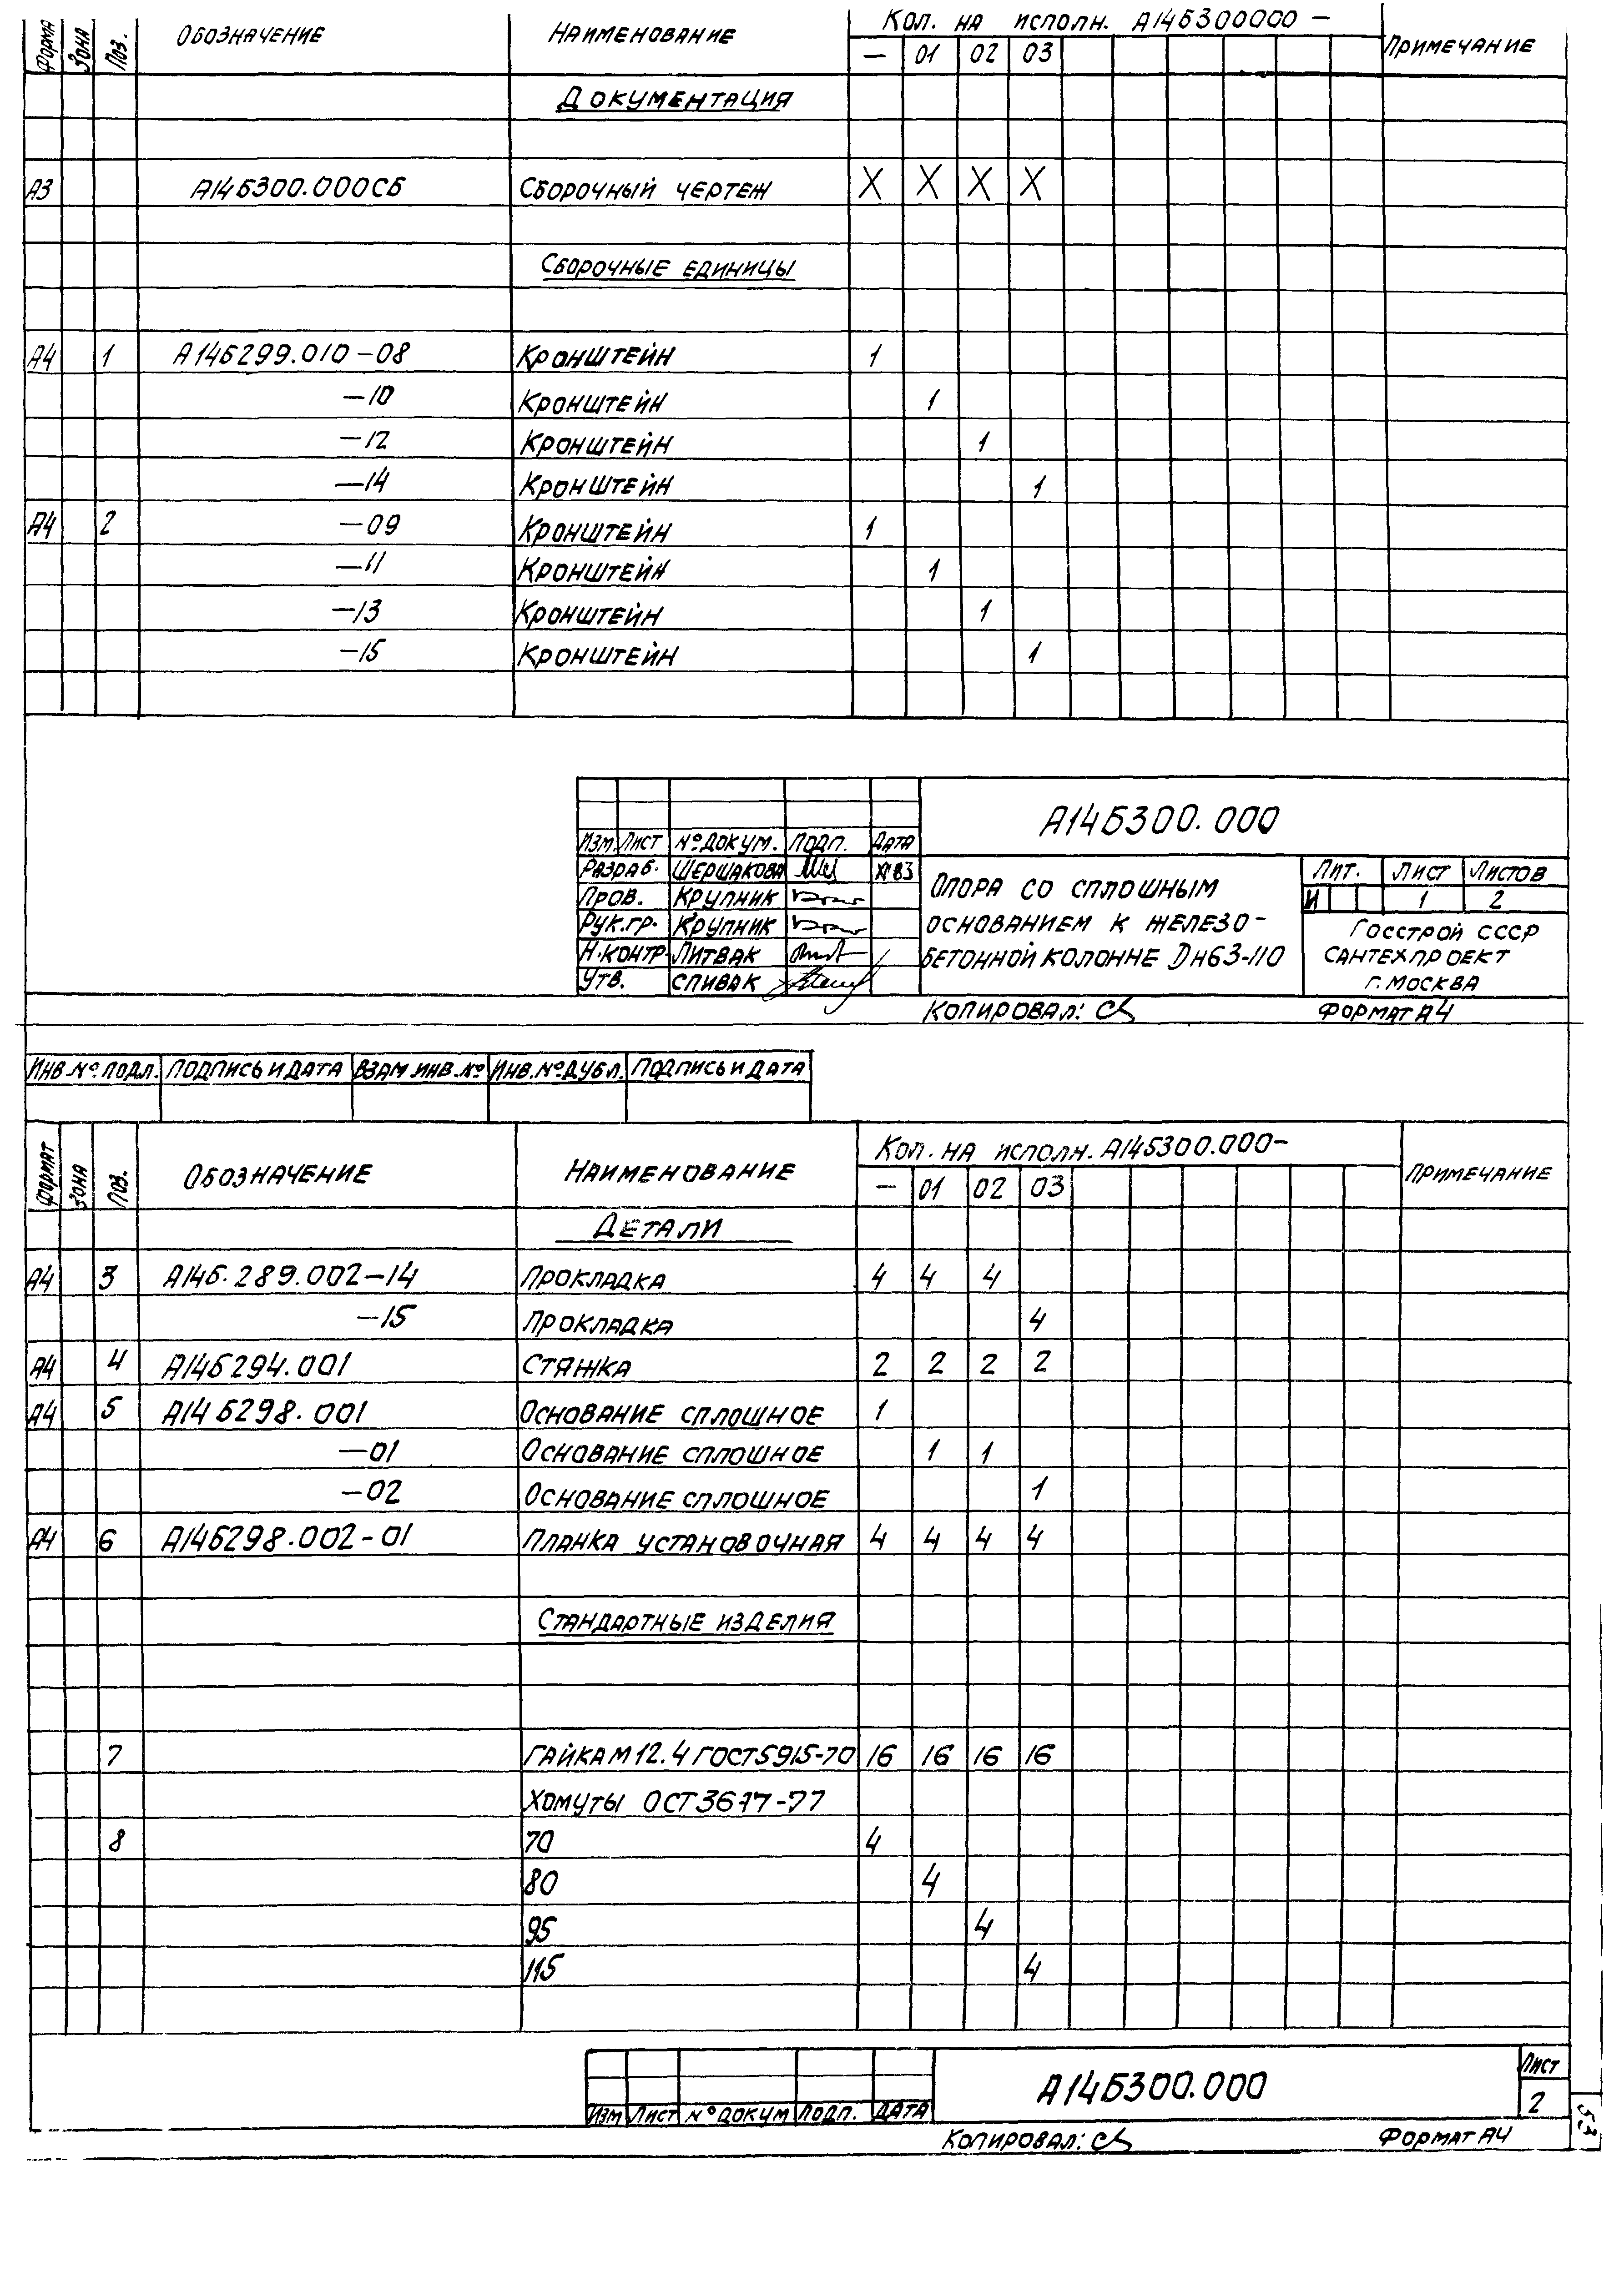 Форма Зона Поз. Обозначение Наименование Кол. на исполн. А14Б300000 — Примечание
— 01 02 03
Документация
А3 А14Б300.000СБ Сборочный чертеж X X X X
Сборочные единицы
А4 1 А14Б299.010-08 Кронштейн 1
—10 Кронштейн 1
—12 Кронштейн 1
—14 Кронштейн 1
А4 2 —09 Кронштейн 1
—11 Кронштейн 1
—13 Кронштейн 1
—15 Кронштейн 1
А14Б300.000
Изм. Лист № докум. Подп. Дата
Разраб. Шершакова
Пров. Крупник
Рук.гр. Крупник
Н.контр. Литвак
Утв. Спивак
Опора со сплошным
основанием к железо-
бетонной колонне Dн63-110
Лит. Лист Листов
И 1 2
Госстрой СССР
Сантехпроект
г. Москва
Копировал: Формат А4
Инв.№ подл. Подпись и дата Взам.инв.№ Инв.№ дубл. Подпись и дата
Формат Зона Поз. Обозначение Наименование Кол. на исполн. А14Б300.000— Примечание
— 01 02 03
Детали
А4 3 А14Б.289.002-14 Прокладка 4 4 4
—15 Прокладка 4
А4 4 А14Б294.001 Стяжка 2 2 2 2
А4 5 А14Б298.001 Основание сплошное 1
—01 Основание сплошное 1 1
—02 Основание сплошное 1
А4 6 А14Б298.002-01 Планка установочная 4 4 4 4
Стандартные изделия
7 Гайка М12.4 ГОСТ5915-70 16 16 16 16
Хомуты ОСТ
8 70 4
80 4
95 4
115 4
А14Б300.000
Лист
2
Изм Лист № докум Подп. Дата
Копировал: Формат А4
53